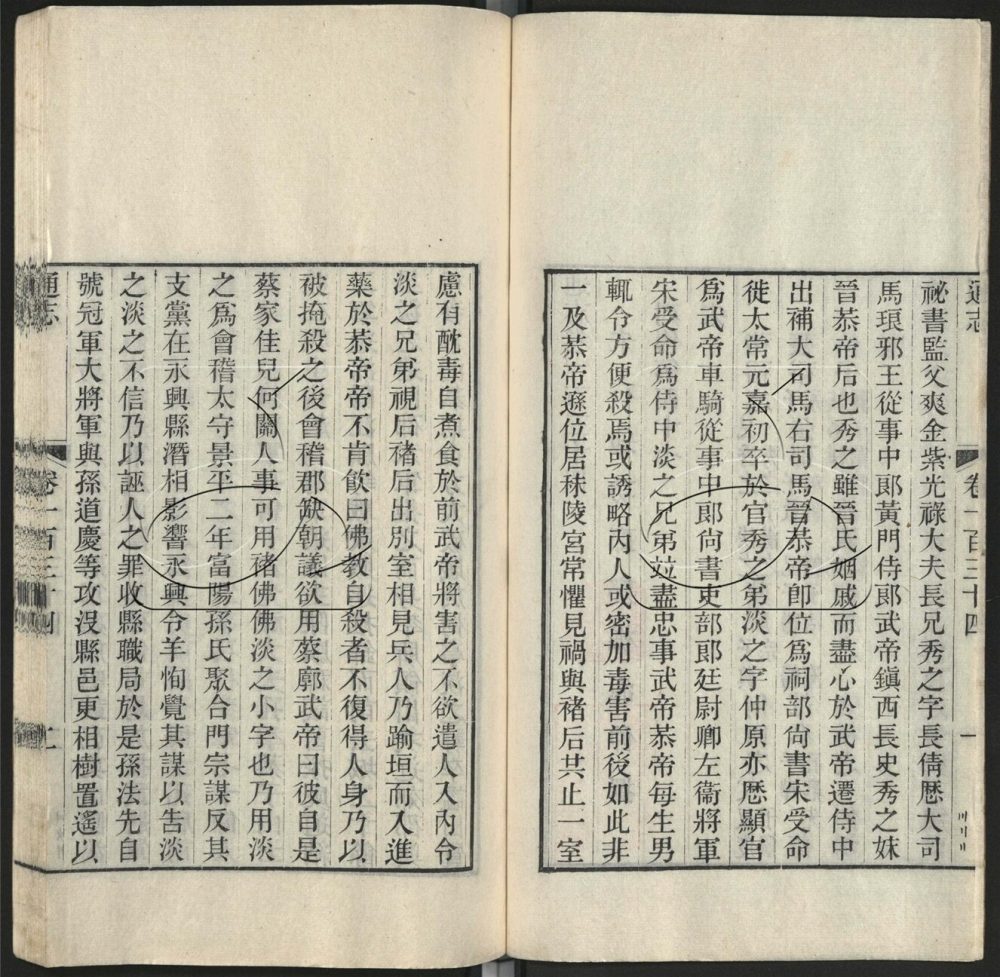 通志
卷一百三十四
一
祕書監父爽金紫光祿大夫長兄秀之字長倩歷大司
馬琅邪王從事中郎黃門侍郎武帝鎮西長史秀之妹
晉恭帝后也秀之雖晉氏姻戚而盡心於武帝遷侍中
出補大司馬右司馬晉恭帝卽位爲祠部尙書宋受命
徙太常元嘉初卒於官秀之弟淡之字仲原亦歷顯官
爲武帝車騎從事中郎尙書吏部郎廷尉卿左衞將軍
宋受命爲侍中淡之兄弟竝盡忠事武帝恭帝每生男
輒令方便殺焉或誘略內人或密加毒害前後如此非
一及恭帝遜位居秣陵宮常懼見禍與褚后共止一室
慮有酖毒自煮食於前武帝將害之不欲遣人入內令
淡之兄弟視后褚后出別室相見兵人乃踰垣而入進
藥於恭帝帝不肯飮曰佛教自殺者不復得人身乃以
被掩殺之後會稽郡缺朝議欲用蔡廓武帝曰彼自是
蔡家佳兒何關人事可用褚佛佛淡之小字也乃用淡
之爲會稽太守景平二年富陽孫氏聚合門宗謀反其
支黨在永興縣潛相影響永興令羊恂覺其謀以告淡
之淡之不信乃以誣人之罪收縣職局於是孫法先自
號冠軍大將軍與孫道慶等攻沒縣邑更相樹置遙以
通志
卷一百三十四